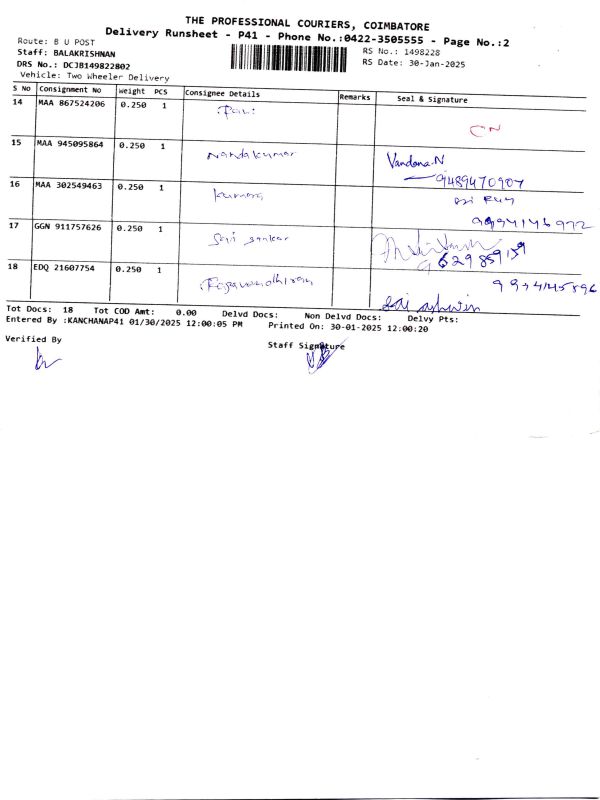 THE PROFESSIONAL COURIERS, COIMBATORE
Delivery Runsheet - P41 - Phone No.:0422-3505555 - Page No.:2
Route: B U POST
RS No.: 1498228
Staff: BALAKRISHNAN
RS Date: 30-Jan-2025
DRS No.: DCJB149822802
Vehicle: Two Wheeler Delivery
S No Consignment No Weight PCS Consignee Details Remarks Seal & Signature
14 MAA 867524206 0.250 1 CN
15 MAA 945095864 0.250 1 Nandakumar Vandana.N
9489470907
16 MAA 302549463 0.250 1
9994146972
17 GGN 911757626 0.250 1 Sai sankar
18 EDQ 21607754 0.250 1
Sai ashwin
Tot Docs: 18 Tot COD Amt: 0.00 Delvd Docs: Non Delvd Docs: Delvy Pts:
Entered By :KANCHANAP41 01/30/2025 12:00:05 PM Printed On: 30-01-2025 12:00:20
Verified By Staff Signature